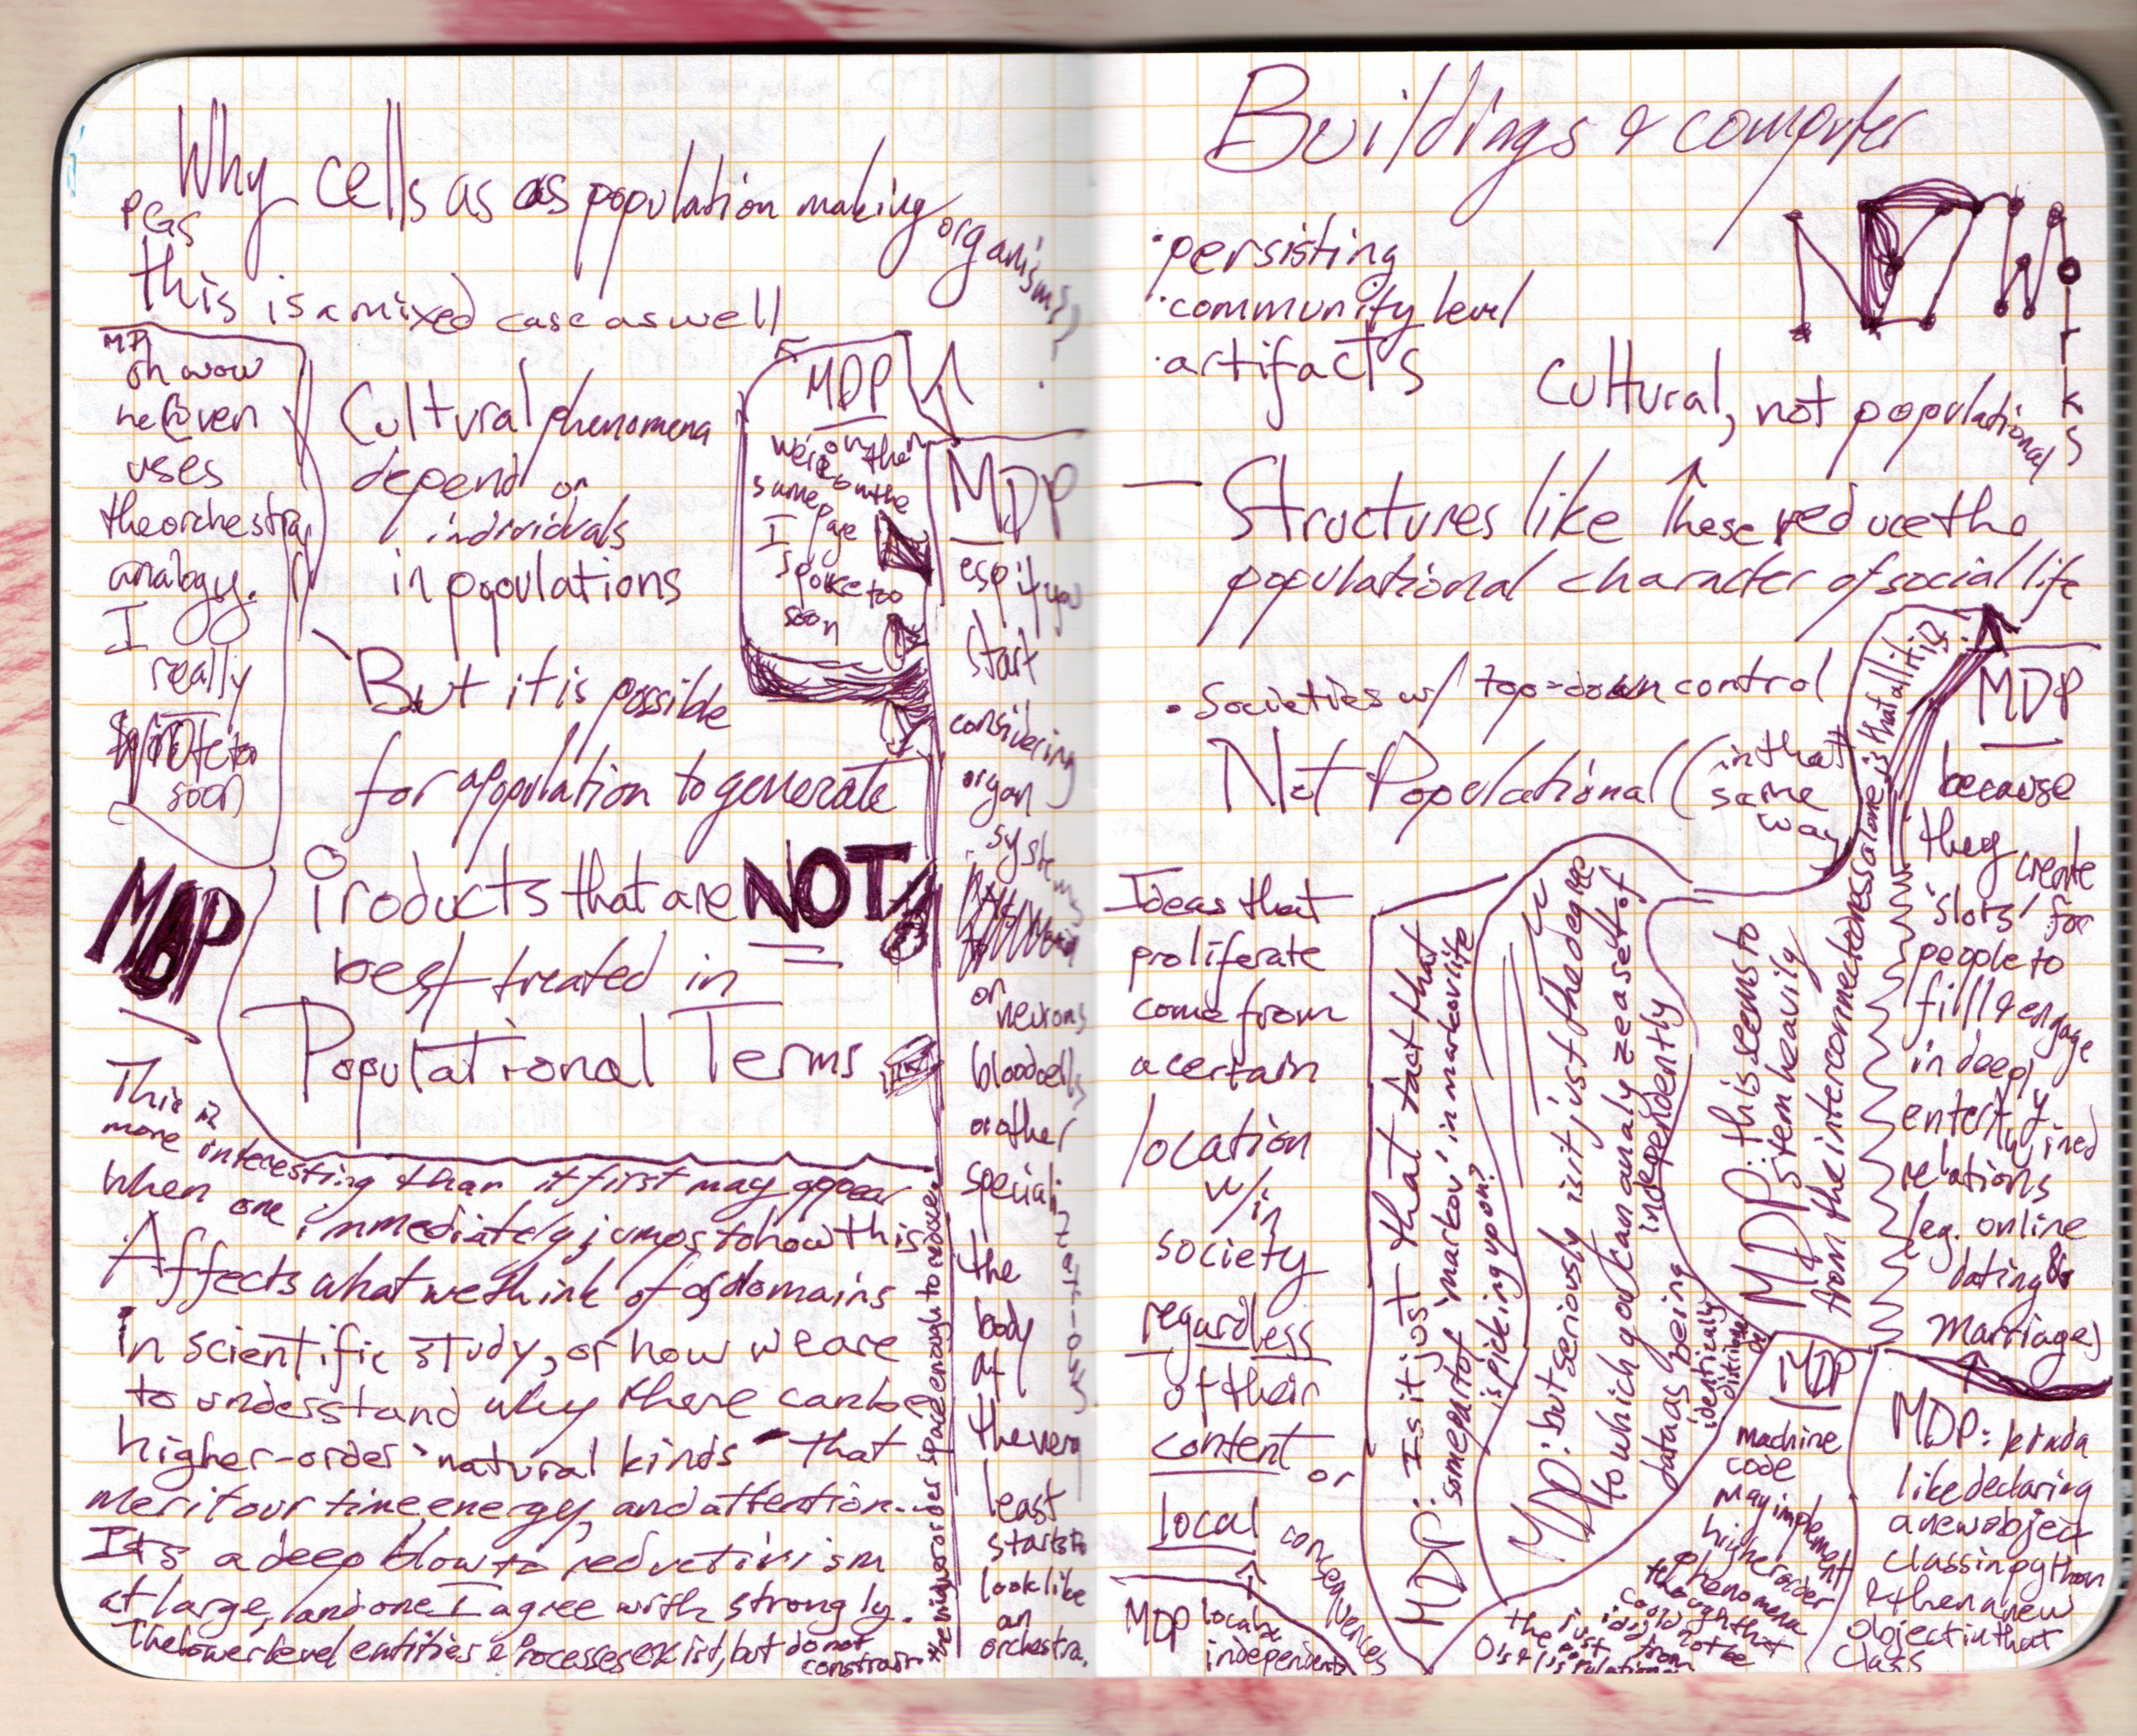 Why cells as as population making organisms?
PGS
this is a mixed case as well
MDP
oh wow
he even
uses
the orchestra
analogy.
I
really
spoke too
soon
Cultural phenomena
depend on
individuals
in populations
But it is possible
for a population to generate
Products that are NOT
best treated in
Populational Terms
MDP
we're on the
same page
I
spoke too
soon
MDP
esp if you
start
considering
organ
systems
or
neurons
blood cells
or other
special
izations
the
body
at
the very
least
starts to
look like
an
orchestra.
MDP
This is
more interesting than it first may appear
When one immediately jumps to how this
Affects what we think of as domains
in scientific study, or how we are
to understand why there can be
higher-order "natural kinds" that
merit our time, energy, and attention...
Its a deep blow to reductivism
at large, and one I agree with strongly.
The lower level entities & processes exist, but do not
constrain
the higher order space enough to recover
Buildings & computer
NETWorks
· persisting
· community level
· artifacts
Cultural, not populational
— Structures like these reduce the
populational character of social life
· Societies w/ top-down control
Not Populational (in that
same
way
Ideas that
proliferate
come from
a certain
location
w/in
society
regardless
of their
content or
local consequences
MDP local &
independent
MDP: Is it just that fact that
some part of 'markov' in markov life
is picking up on?
MDP: but seriously isit just the degree
to which you can analyze a set of
data as being independently
identically
distributed
MDP: this seems to
stem heavily
from the interconnectedness alone is that all it is?
MDP
because
they create
'slots' for
people to
fill & engage
in deeply
entertwined
relations
(eg. online
dating &
marriages)
MDP
machine
code
may implement
higher order
phenomena
though that
could not be
MDP: kinda
like declaring
a new object
class in python
& then a new
object in that
class